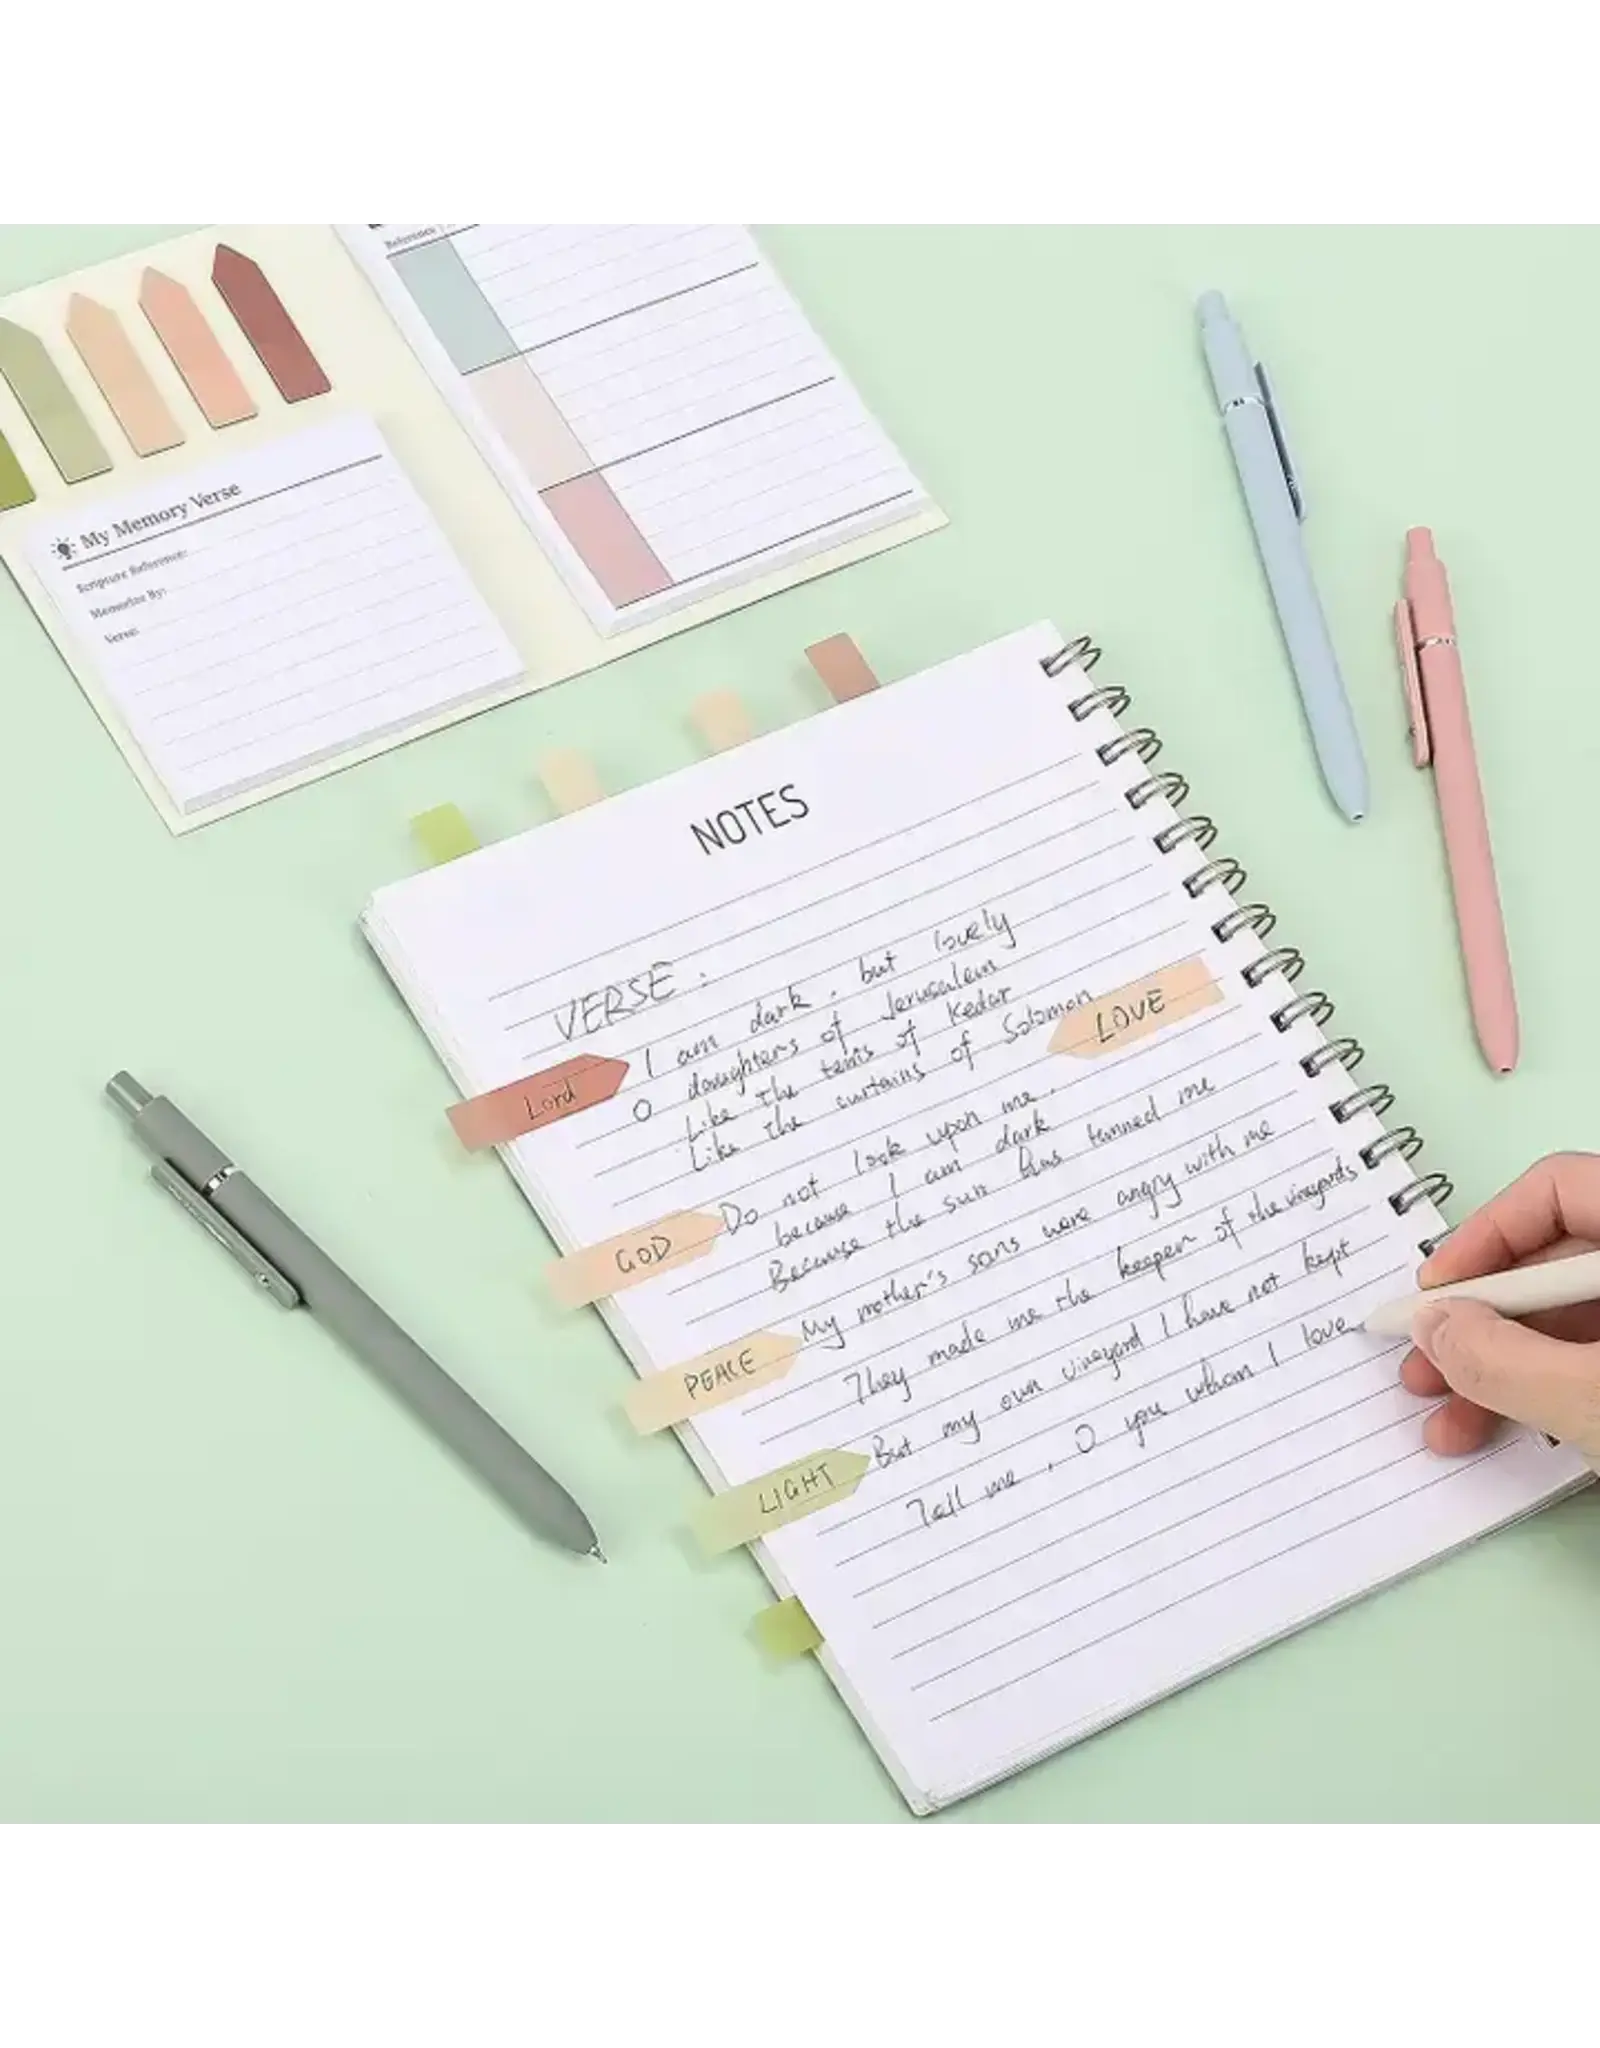 Reference
My Memory Verse
Scripture Reference:
Memorize By:
Verse:
NOTES
VERSE :
I am dark , but lovely
O daughters of Jerusalem
Like the tents of Kedar
Like the curtains of Solomon
LOVE
Lord
Do not look upon me.
because I am dark
Because the sun has tanned me
GOD
My mother's sons were angry with me
They made me the keeper of the vineyards
PEACE
But my own vineyard I have not kept
Tell me , O you whom I love
LIGHT